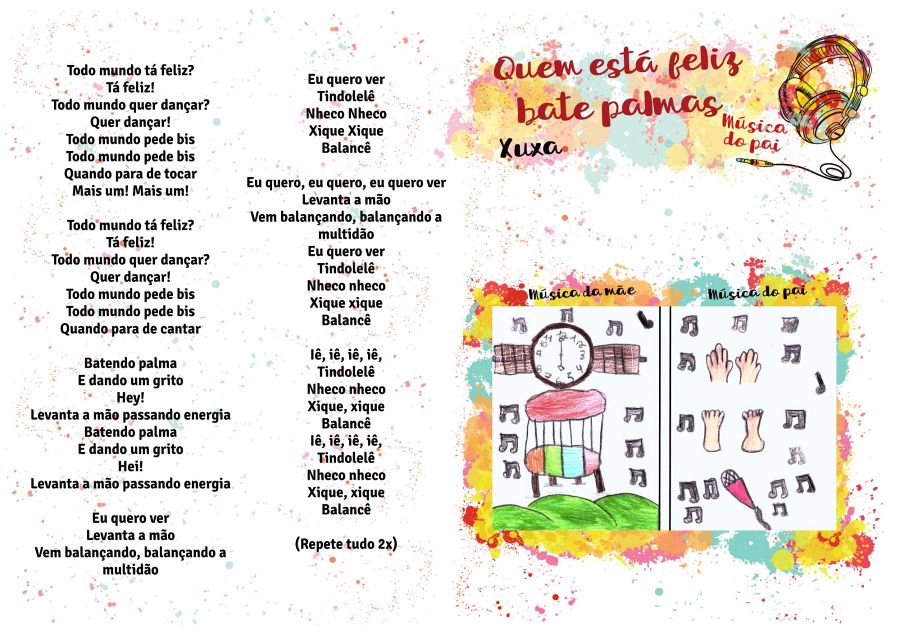 Todo mundo tá feliz?
Tá feliz!
Todo mundo quer dançar?
Quer dançar!
Todo mundo pede bis
Todo mundo pede bis
Quando para de tocar
Mais um! Mais um!
Todo mundo tá feliz?
Tá feliz!
Todo mundo quer dançar?
Quer dançar!
Todo mundo pede bis
Todo mundo pede bis
Quando para de cantar
Batendo palma
E dando um grito
Hey!
Levanta a mão passando energia
Batendo palma
E dando um grito
Hei!
Levanta a mão passando energia
Eu quero ver
Levanta a mão
Vem balançando, balançando a
multidão
Eu quero ver
Tindolelê
Nheco Nheco
Xique Xique
Balancê
Eu quero, eu quero, eu quero ver
Levanta a mão
Vem balançando, balançando a
multidão
Eu quero ver
Tindolelê
Nheco nheco
Xique xique
Balancê
Iê, iê, iê, iê,
Tindolelê
Nheco nheco
Xique, xique
Balancê
Iê, iê, iê, iê,
Tindolelê
Nheco nheco
Xique, xique
Balancê
(Repete tudo 2x)
Quem está feliz
bate palmas
Música
do pai
Xuxa
Música da mãe
Música do pai